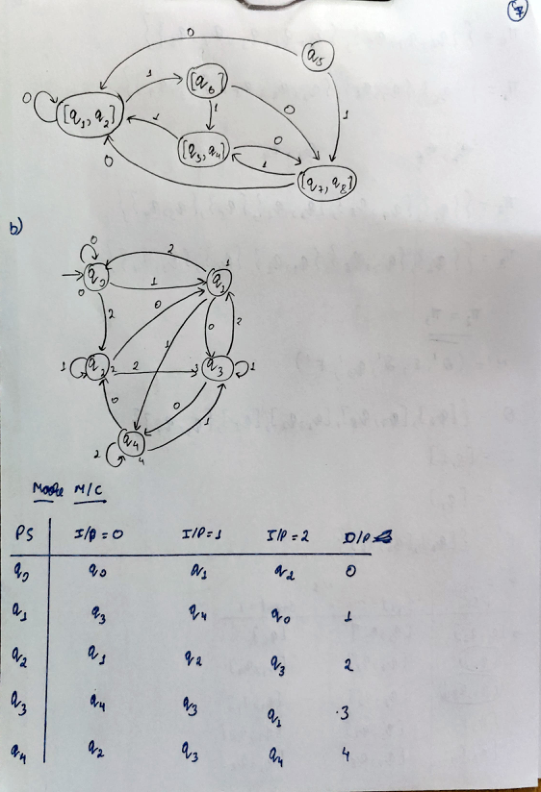 7
0
q5
1
[q6]
0
[q1, q2]
1
0
1
1
[q3, q4]
0
1
[q7, q8]
0
b)
0
2
1
q0
1
q1
0
2
0
1
0
2
1
q2
2
2
q3
1
0
0
1
q4
2
4
Moore M/C
PS I/P=0 I/P=1 I/P=2 O/P
q0 q0 q1 q2 0
q1 q3 q4 q0 1
q2 q1 q2 q3 2
q3 q4 q3 q1 3
q4 q2 q3 q4 4